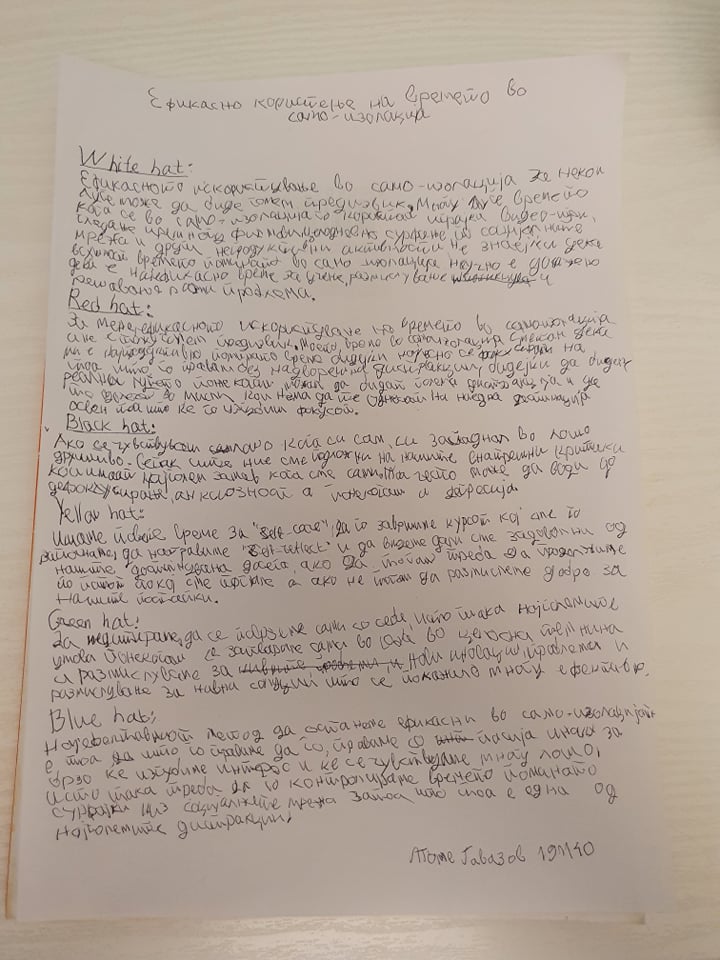 Ефикасно користење на времето во
само-изолација
White hat:
Ефикасното искористување во само-изолација за некои
луѓе може да биде голем предизвик. Многу луѓе времето
кога се во само-изолација го користат играјќи видео-игри,
гледање премногу филмови, целодневно сурфање по социјалните
мрежи и други непродуктивни активности не знаејќи дека
всушност времето поминато во само изолација научно е докажано
дека е најефикасно време за учење, размислување и
решавање разни проблема.
Red hat:
За мене ефикасното искористување на времето во самоизолација
и не е толку голем предизвик. Моето време во самоизолација сметам дека
ми е најпродуктивно поминато време бидејќи најлесно се фокусирам на
тоа што го правам без надворешни дистракции, бидејќи да бидам
реален луѓето понекогаш можат да бидат голема дистракција и
во мисли кои нема да те однесат на ниедна дестинација
освен тоа што ќе го изгубиш фокусот.
Black hat:
Ако се чувствувам лошо кога си сам, си западнал во лошо
друштво. Сепак сите ние сме подложни на нашите внатрешни критики
кои имаат најголем замав кога сме сами. Па често може да води до
дефокусирање, анксиозност а понекогаш и депресија.
Yellow hat:
Имаме повеќе време за "self-care", да го завршиме курсот кој сме го
започнале, да направиме "self-reflect" и да видеме дали сме задоволни од
нашите достигнувања досега, ако да, тогаш треба да продолжиме
по патот по кој сме тргнале а ако не тогаш да размислеме добро за
нашите постапки.
Green hat:
За медитирање, да се поврземе сами со себе, исто така најголемите
умови понекогаш се затворале сами во соба во целосна темнина
и размислувале за нови иновации, проблеми и
размислување за нивни солуции што се покажало многу ефективно.
Blue hat:
Најефективниот метод да останеме ефикасни во само-изолација
е тоа што го правиме да го правиме со пасија инаку за
брзо ќе изгубиме интерес и ќе се чувствуваме многу лошо,
исто така треба да го контролираме времето поминато
сурфајќи низ социјалните мрежа затоа што тоа е една од
најголемите дистракции!
Томе Гавазов 191140